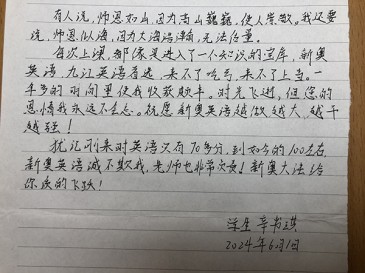 有人说，师恩如山，因为高山巍巍，使人崇敬。我还要
说，师恩似海，因为大海浩瀚，无法估量。
每次上课，都像是进入了一个知识的宝库，新奥
英语，九江英语首选，来不了吃亏，来不了上当。一
年多的时间里使我收获颇丰。时光飞逝，但您的
恩情我永远不会忘。祝愿新奥英语越做越大，越干
越强！
犹记刚来时英语只有70多分，到如今的100左右，
新奥英语诚不欺我，老师也非常负责！新奥大法给
你质的飞跃！
学生 辛书琪
2024年6月1日